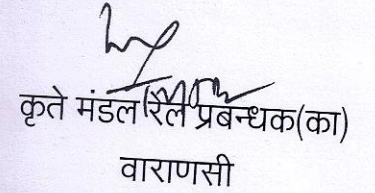 कृते मंडल रेल प्रबन्धक(का)
वाराणसी